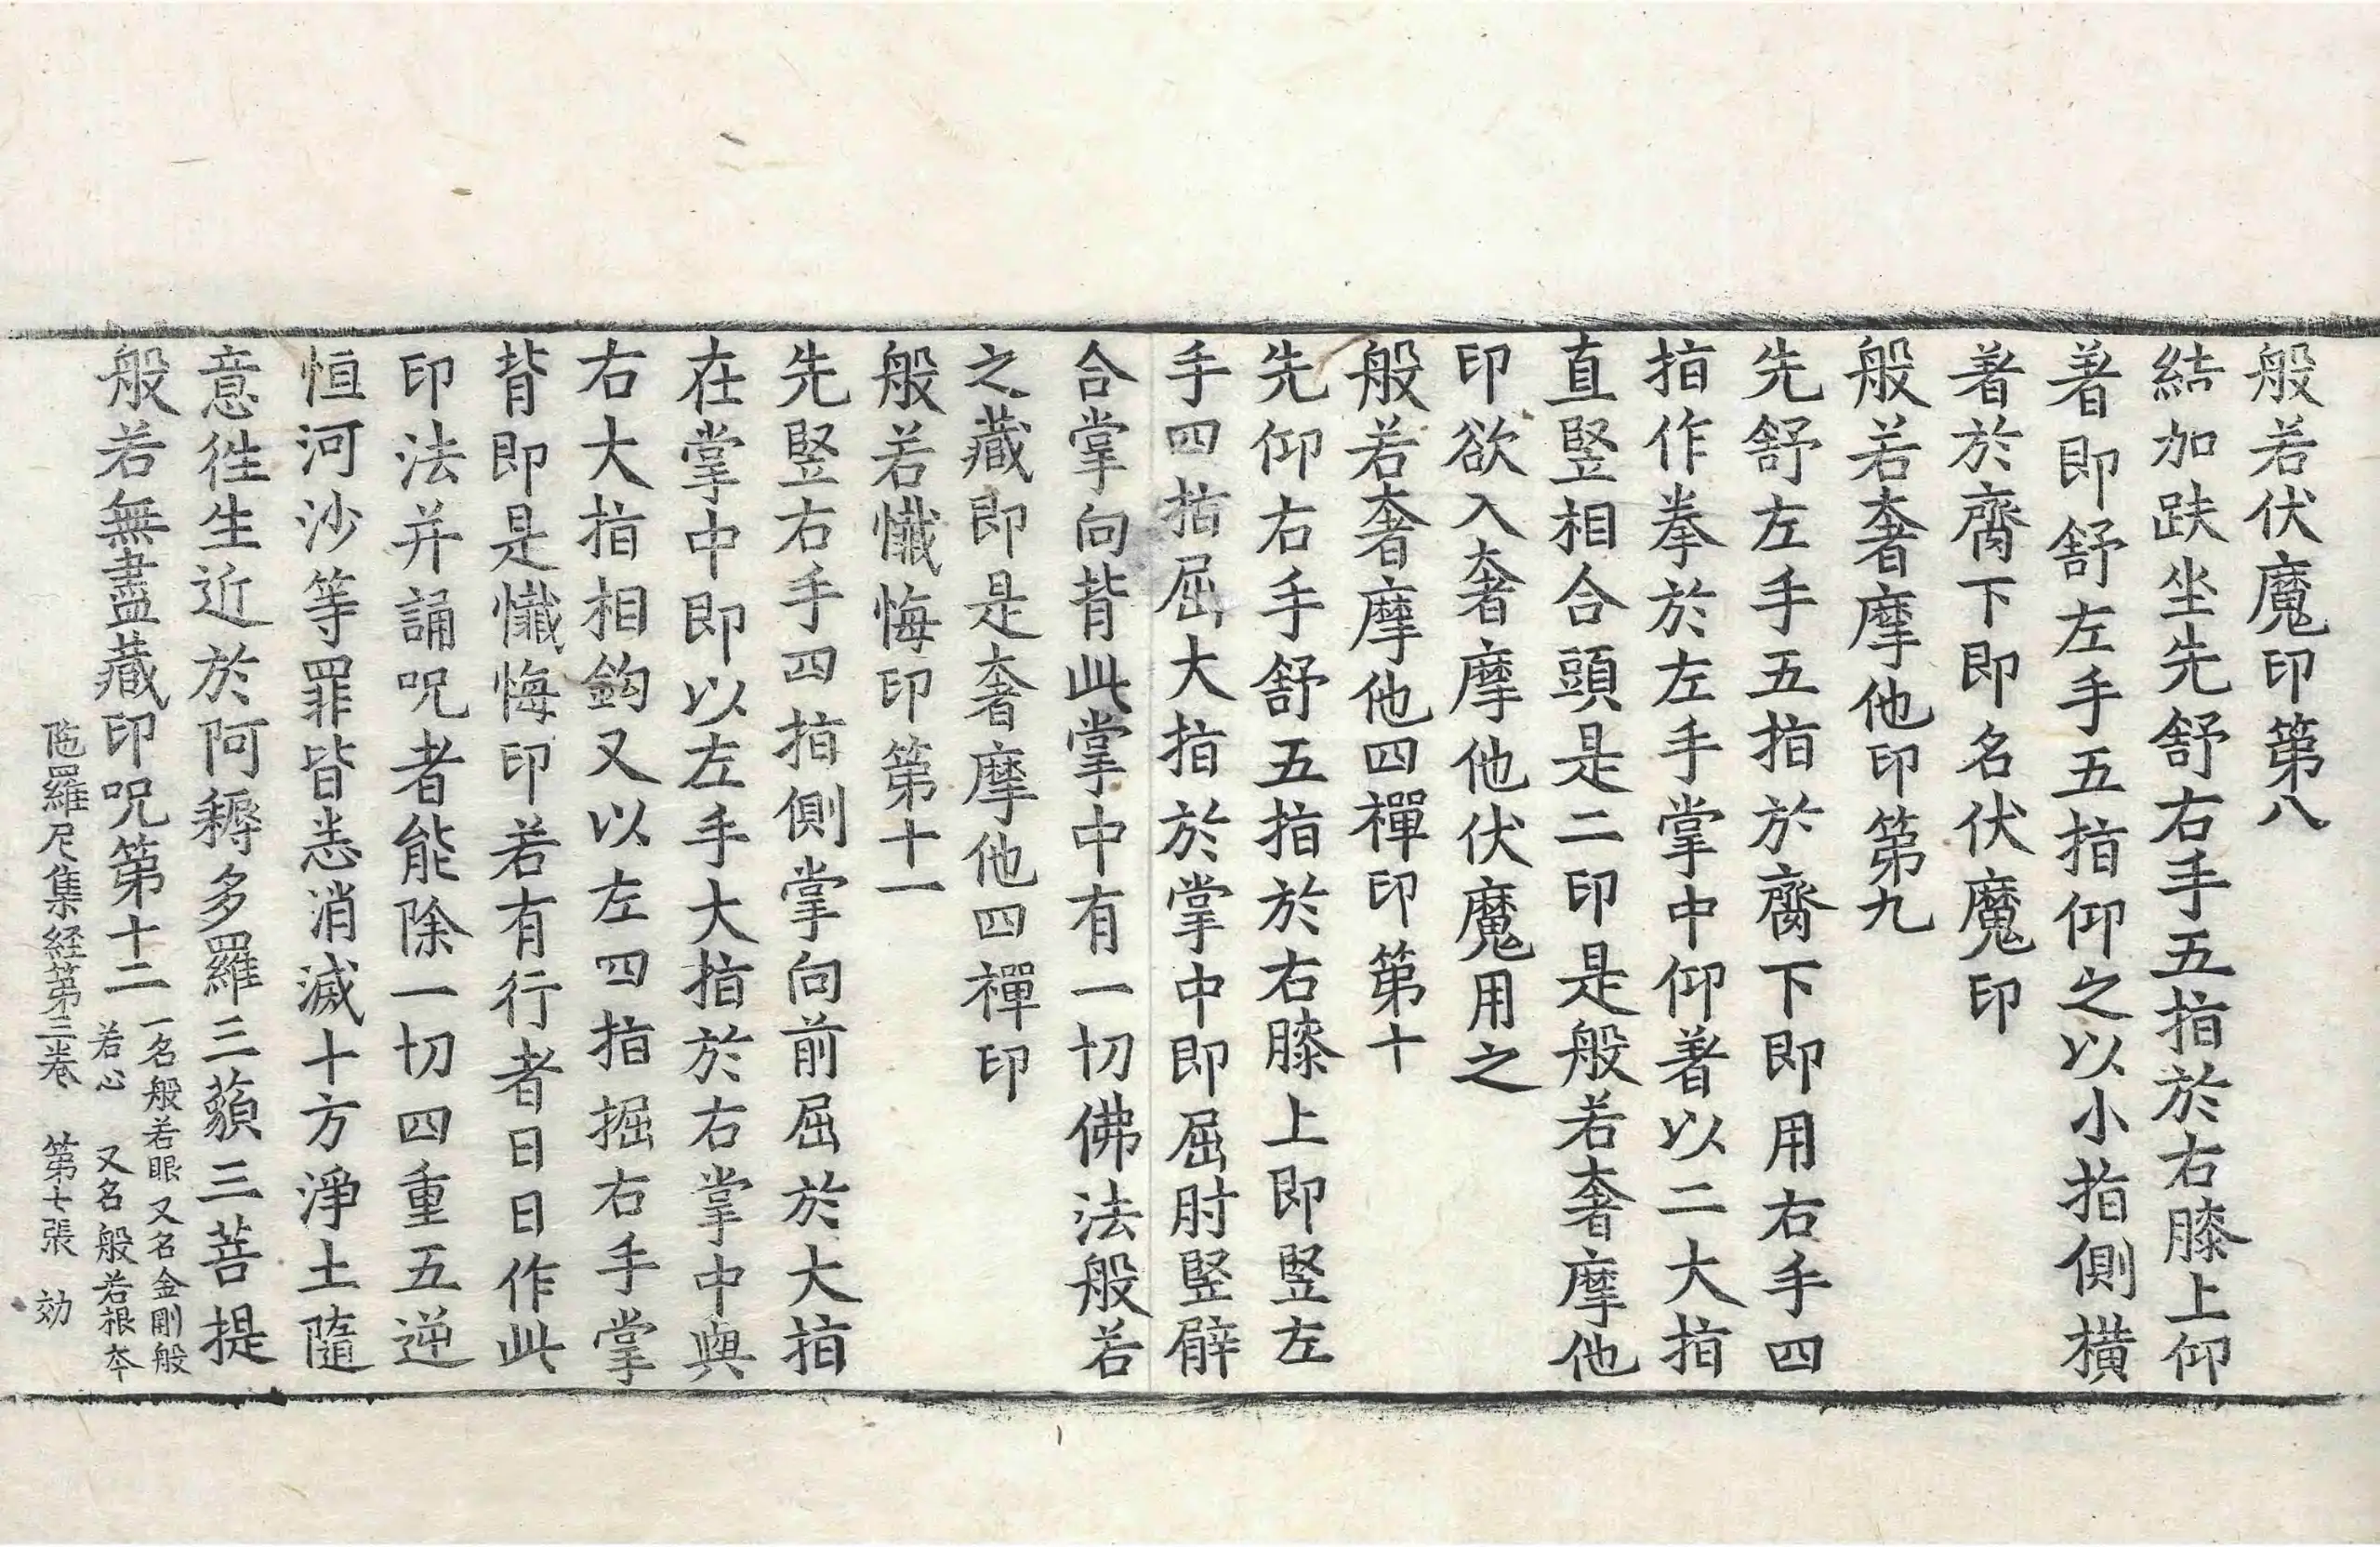 般若伏魔印第八
結加趺坐先舒右手五指於右膝上仰
著即舒左手五指仰之以小指側橫
著於齎下即名伏魔印
般若奢摩他印第九
先舒左手五指於齎下即用右手四
指作拳於左手掌中仰著以二大指
直竪相合頭是二印是般若奢摩他
印欲入奢摩他伏魔用之
般若奢摩他四禪印第十
先仰右手舒五指於右膝上即竪左
手四指屈大指於掌中即屈肘竪臂
合掌向背此掌中有一切佛法般若
之藏即是奢摩他四禪印
般若懺悔印第十一
先竪右手四指側掌向前屈於大指
在掌中即以左手大指於右掌中與
右大指相鈎又以左四指掘右手掌
背即是懺悔印若有行者日日作此
印法并誦呪者能除一切四重五逆
恒河沙等罪皆悉消滅十方淨土隨
意徃生近於阿耨多羅三藐三菩提
般若無盡藏印呪第十二 一名般若眼 又名金剛般
若心 又名般若根夲
陁羅尼集経第三卷 第七張 効